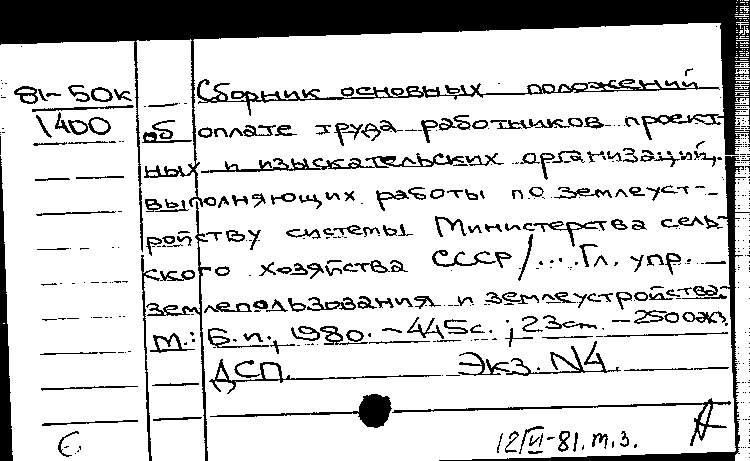 81-50к Сборник основных положений
1400 об оплате труда работников проект-
ных и изыскательских организаций,
выполняющих работы по землеуст-
ройству системы Министерства сель-
ского хозяйства СССР/....Гл. упр.
землепользования и землеустройства.
м.: Б.и., 1980. - 445с.; 23см. - 2500экз.
ДСП. Экз. N4.
12/VI-81. т.з.